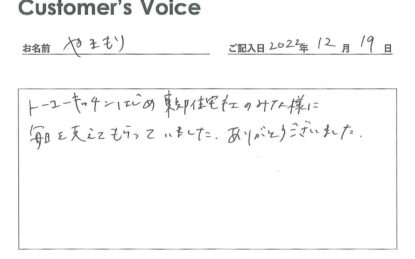 Customer's Voice
お名前 やまもり ご記入日 2022年 12月 19日
トーヨーキッチンはじめ 東郊住宅社のみなな様に
毎日を支えてもらっていました。ありがとうございました。